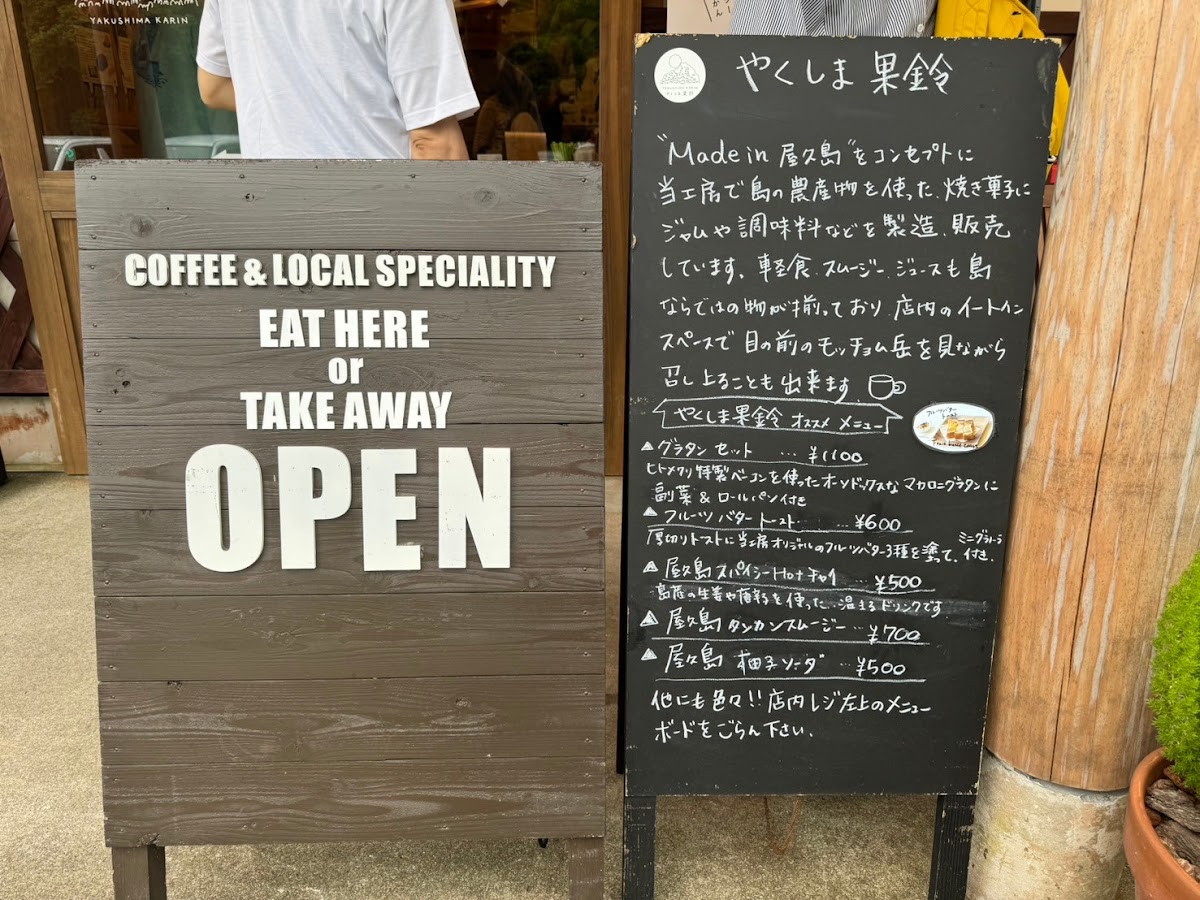 YAKUSHIMA KARIN
COFFEE & LOCAL SPECIALITY
EAT HERE
or
TAKE AWAY
OPEN
やくしま果鈴
"Made in 屋久島"をコンセプトに
当工房で島の農産物を使った、焼き菓子に
ジャムや調味料などを製造、販売
しています。軽食、スムージー、ジュースも島
ならではの物が揃っており、店内のイートイン
スペースで目の前のモッチョム岳を見ながら
召し上ることも出来ます。
やくしま果鈴 オススメ メニュー
グラタンセット …¥1100
ヒトメクリ特製ベーコンを使ったオーソドックスなマカロニグラタンに
副菜&ロールパン付き
フルーツバタートースト …¥600
厚切りトーストに当工房オリジナルのフルーツバター3種を塗って、ミニグラノーラ付き.
屋久島スパイシーHotチャイ …¥500
島産の生姜や唐辛子を使った、温まるドリンクです
屋久島タンカンスムージー…¥700
屋久島 柚子ソーダ …¥500
他にも色々!!店内レジ左上のメニュー
ボードをごらん下さい.